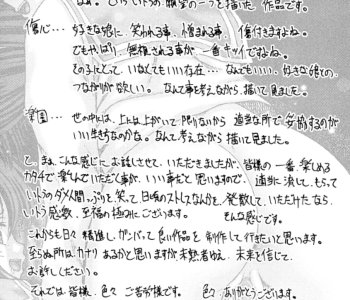 なぁ。ひらいトラの願望の一つを描いた、作品です。
傷心… 好きな娘に、笑われる事、憎まれる事、傷付きますよね。
でもやはり、無視される事が一番キツイですよね。
その子にとって、いなくてもいい存在… なんでもいい、好きな娘との、
つながりが欲しい。なんて事考えながら、描いて見ました。
楽園… 世の中は、上には上がいて限りないから適当な所で妥協するのが
いい生き方なのかな。なんて考えながら描いて見ました。
て、まぁ、こんな感じにお話しさせて、いただきましたが、皆様の一番、楽しめる
カタチで楽しんでいただく事が、いい事だと思いますので、適当に流して、もらって
いトラのダメ人間っぷりを笑って日頃のストレスなんかを、発散して、いただけたなら、
いトラ感激、至福の極みにございます。 そんな感じです。
これからも日々精進し、ガンバって良い作品を制作して行きたいと思います。
至らぬ所は、カナリあるかと思いますが未熟者ゆえ、未来を信じて、
お許しください。
それでは、皆様、色々ご苦労様です。 色々、ありがとうございます。